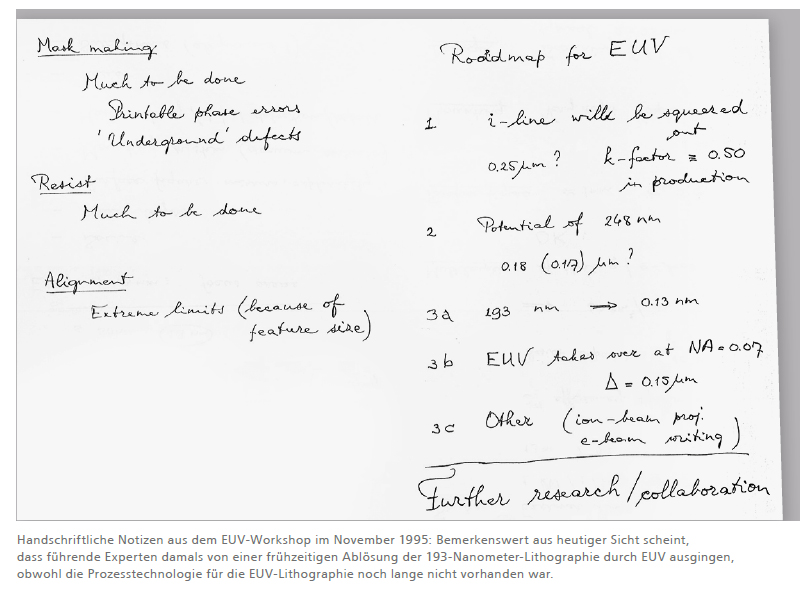 Mask making
Much to be done
Printable phase errors
'Underground' defects
Resist
Much to be done
Alignment
Extreme limits (because of
feature size)
Roadmap for EUV
1 i-line will be squeezed
out
0.25 μm? k-factor ≡ 0.50
in production
2 Potential of 248 nm
0.18 (0.17) μm?
3a 193 nm ⇒ 0.13 nm
3b EUV takes over at NA=0.07
Δ = 0.15 μm
3c Other (ion-beam proj.
e-beam writing)
Further research/collaboration
Handschriftliche Notizen aus dem EUV-Workshop im November 1995: Bemerkenswert aus heutiger Sicht scheint,
dass führende Experten damals von einer frühzeitigen Ablösung der 193-Nanometer-Lithographie durch EUV ausgingen,
obwohl die Prozesstechnologie für die EUV-Lithographie noch lange nicht vorhanden war.